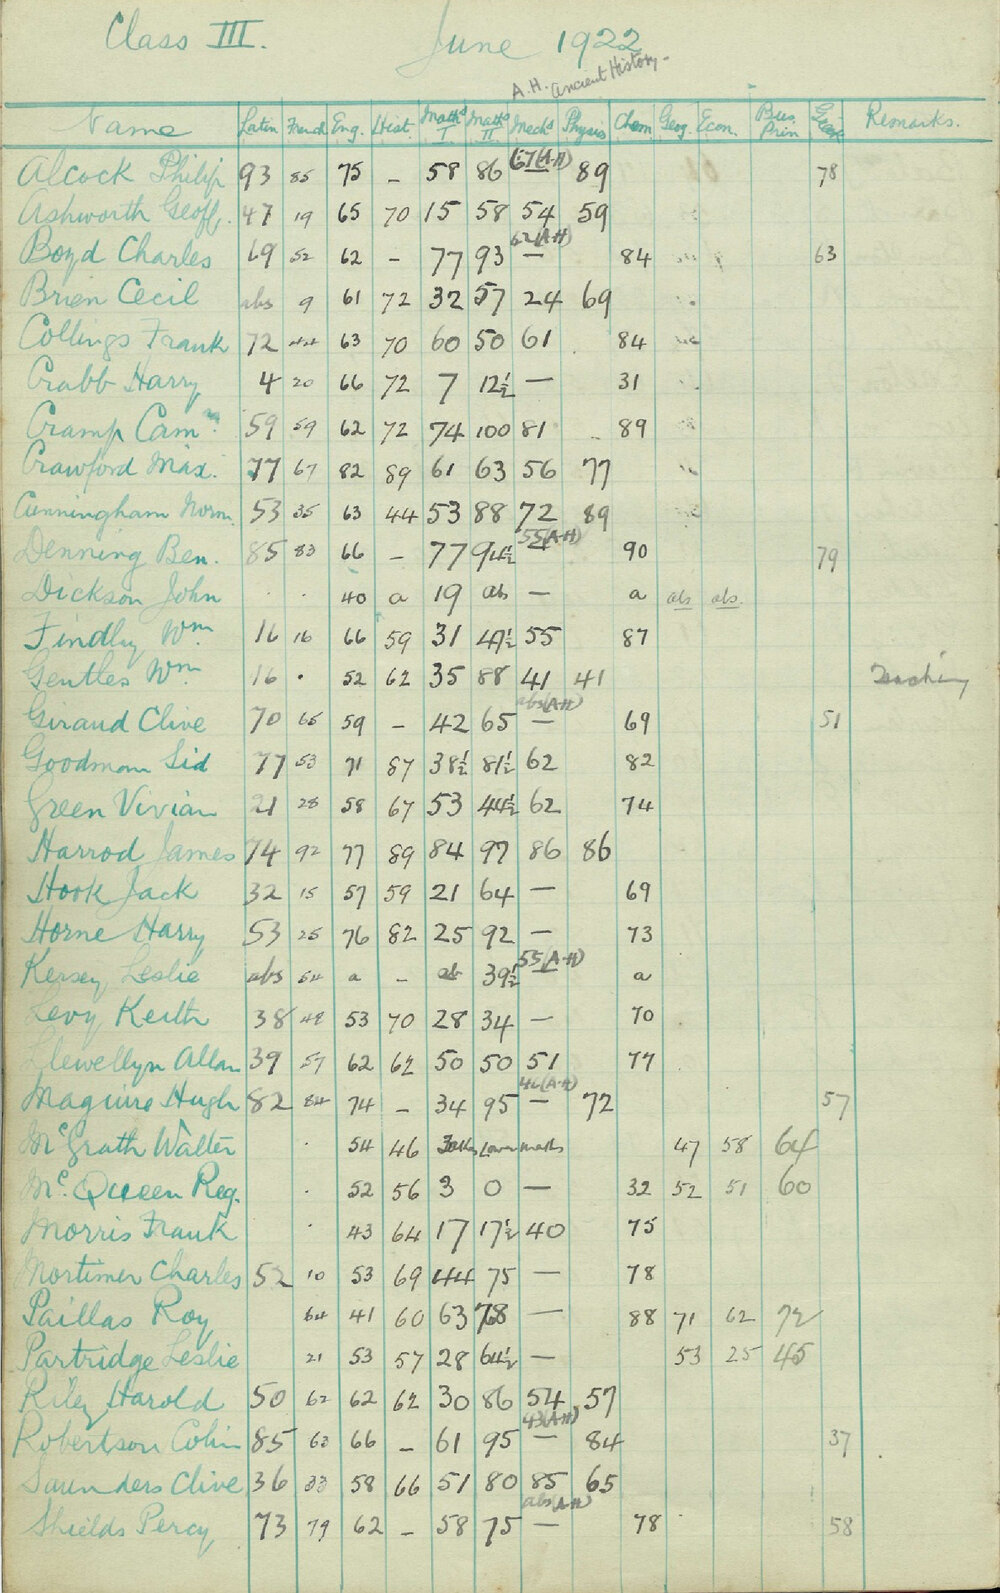 Class III. June 1922
A.H. Ancient History.
Name Latin French Eng. Hist. Maths I Maths II Mechs Physics Chem Geog. Econ. Bus. Prin Greek Remarks.
Alcock Philip 93 85 75 – 58 86 67(A-H) 89 78
Ashworth Geoff. 47 19 65 70 15 58 54 59
Boyd Charles 69 52 62 – 77 93 62(A-H) – 84 63
Brien Cecil abs 9 61 72 32 57 24 69
Collings Frank 72 44 63 70 60 50 61 84
Crabb Harry 4 20 66 72 7 12½ – 31
Cramp Cam. 59 59 62 72 74 100 81 89
Crawford Max. 77 67 82 89 61 63 56 77
Cunningham Norm. 53 35 63 44 53 88 72 89
Denning Ben. 85 83 66 – 77 94½ 55(A-H) – 90 79
Dickson John 40 a 19 ab – a abs abs.
Findlay Wm 16 16 66 59 31 47½ 55 87
Gentles Wm 16 . 52 62 35 88 41 41
Giraud Clive 70 65 59 – 42 65 abs(A-H) – 69 51
Goodman Sid 77 53 71 87 38½ 81½ 62 82
Green Vivian 21 28 58 67 53 44½ 62 74
Harrod James 74 92 77 89 84 97 86 86
Hook Jack 32 15 57 59 21 64 – 69
Horne Harry 53 25 76 82 25 92 – 73
Kersey Leslie abs 54 a – ab 39½ 55(A-H) a
Levy Keith 38 48 53 70 28 34 – 70
Llewellyn Allan 39 57 62 62 50 50 51 77
Maguire Hugh 82 84 74 – 34 95 46(A-H) – 72 57
McGrath Walter 54 46 Lower maths 47 58 64
Mc.Queen Reg. 52 56 3 0 – 32 52 51 60
Morris Frank 43 64 17 17½ 40 75
Mortimer Charles 52 10 53 69 44 75 – 78
Paillas Roy 64 41 60 63 78 – 88 71 62 72
Partridge Leslie 21 53 57 28 64½ – 53 25 45
Riley Harold 50 62 62 62 30 86 54 57
Robertson Colin 85 63 66 – 61 95 43(A-H) – 84 37
Saunders Clive 36 33 58 66 51 80 85 65
Shields Percy 73 79 62 – 58 75 abs(A-H) – 78 58